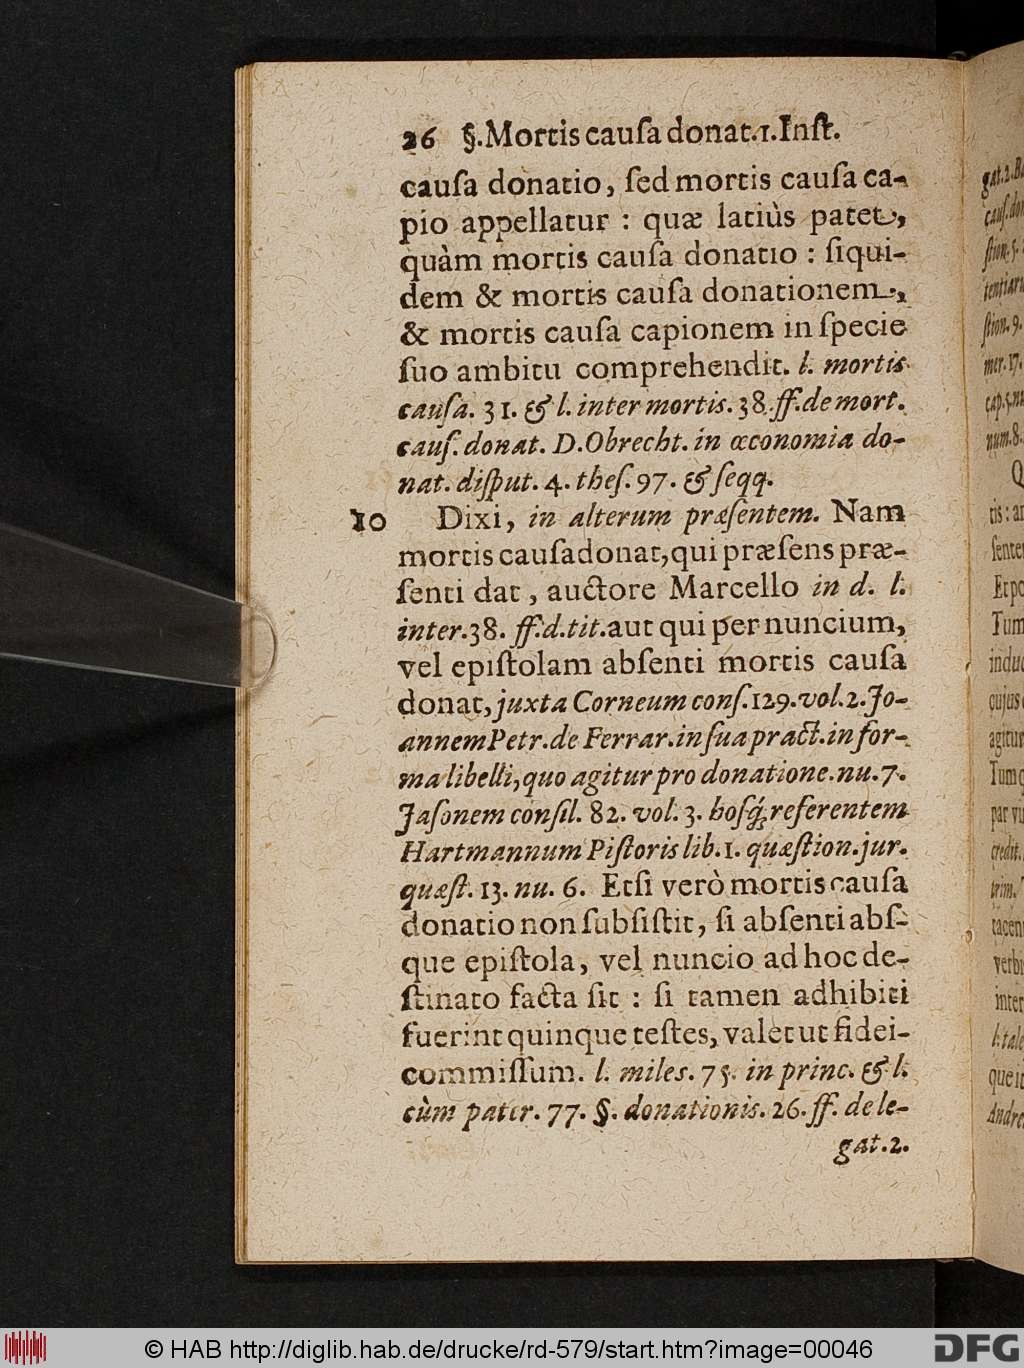 26 §. Mortis cauſa donat. 1. Inſt.
cauſa donatio, ſed mortis cauſa ca-
pio appellatur : quæ latiùs patet,
quàm mortis cauſa donatio : ſiqui-
dem & mortis cauſa donationem,
& mortis cauſa capionem in ſpecie
ſuo ambitu comprehendit. l. mortis
cauſa. 31. & l. inter mortis. 38. ff. de mort.
cauſ. donat. D. Obrecht. in œconomia do-
nat. diſput. 4. theſ. 97. & ſeqq.
10 Dixi, in alterum præſentem. Nam
mortis cauſa donat, qui præſens præ-
ſenti dat, auctore Marcello in d. l.
inter. 38. ff. d. tit. aut qui per nuncium,
vel epiſtolam abſenti mortis cauſa
donat, juxta Corneum conſ. 129. vol. 2. Jo-
annem Petr. de Ferrar. in ſua pract. in for-
ma libelli, quo agitur pro donatione. nu. 7.
Jaſonem conſil. 82. vol. 3. hosq́; referentem
Hartmannum Piſtoris lib. 1. quæſtion. jur.
quæſt. 13. nu. 6. Etſi verò mortis cauſa
donatio non ſubſiſtit, ſi abſenti abſ-
que epiſtola, vel nuncio ad hoc de-
ſtinato facta ſit : ſi tamen adhibiti
fuerint quinque teſtes, valet ut fidei-
commiſſum. l. miles. 75. in princ. & l.
cùm pater. 77. §. donationis. 26. ff. de le-
gat. 2.
gat. 2.
cauſ. do
ſtion. 5.
ſtion. 9.
mer. 17.
num. 8.
tis : 
ſente
Et po
Tum
induc
cujus
agitur
Tum q
par vi
credit.
trim.
tacen
verbi
inter
l. tale
que it
Andre
© HAB http://diglib.hab.de/drucke/rd-579/start.htm?image=00046
DFG